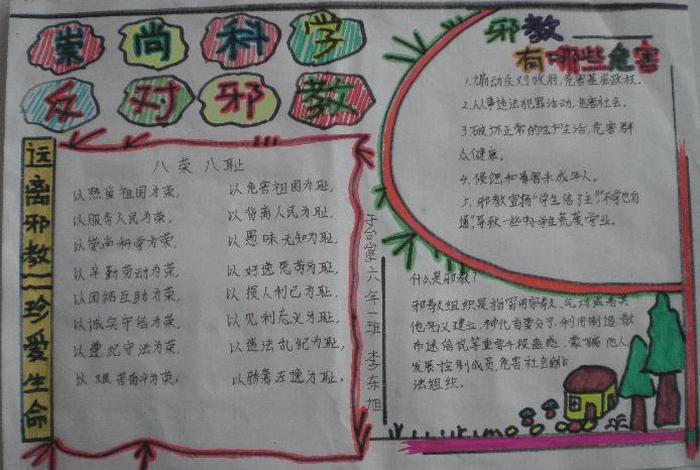 崇尚科学
反对邪教
远离邪教
珍爱生命
八荣八耻
以热爱祖国为荣,以危害祖国为耻,
以服务人民为荣,以背离人民为耻,
以崇尚科学为荣,以愚昧无知为耻,
以辛勤劳动为荣,以好逸恶劳为耻,
以团结互助为荣,以损人利己为耻,
以诚实守信为荣,以见利忘义为耻,
以遵纪守法为荣,以违法乱纪为耻,
以艰苦奋斗为荣,以骄奢淫逸为耻。
台堂六年一班 李东旭
邪教
有哪些危害
1.煽动反对政府,危害基层政权。
2.从事违法犯罪活动,危害社会。
3.破坏正常的生产生活,危害群
众健康。
4.侵蚀和毒害未成年人。
5.邪教宣扬"学生信了主,不学也自
通",导致一些中学生荒废学业。
什么是邪教?
邪教组织是指冒用宗教、气功或者其
他名义建立,神化首要分子,利用制造、散
布迷信邪说等 蒙骗他人,
发展控制成员,危害社会
法组织。